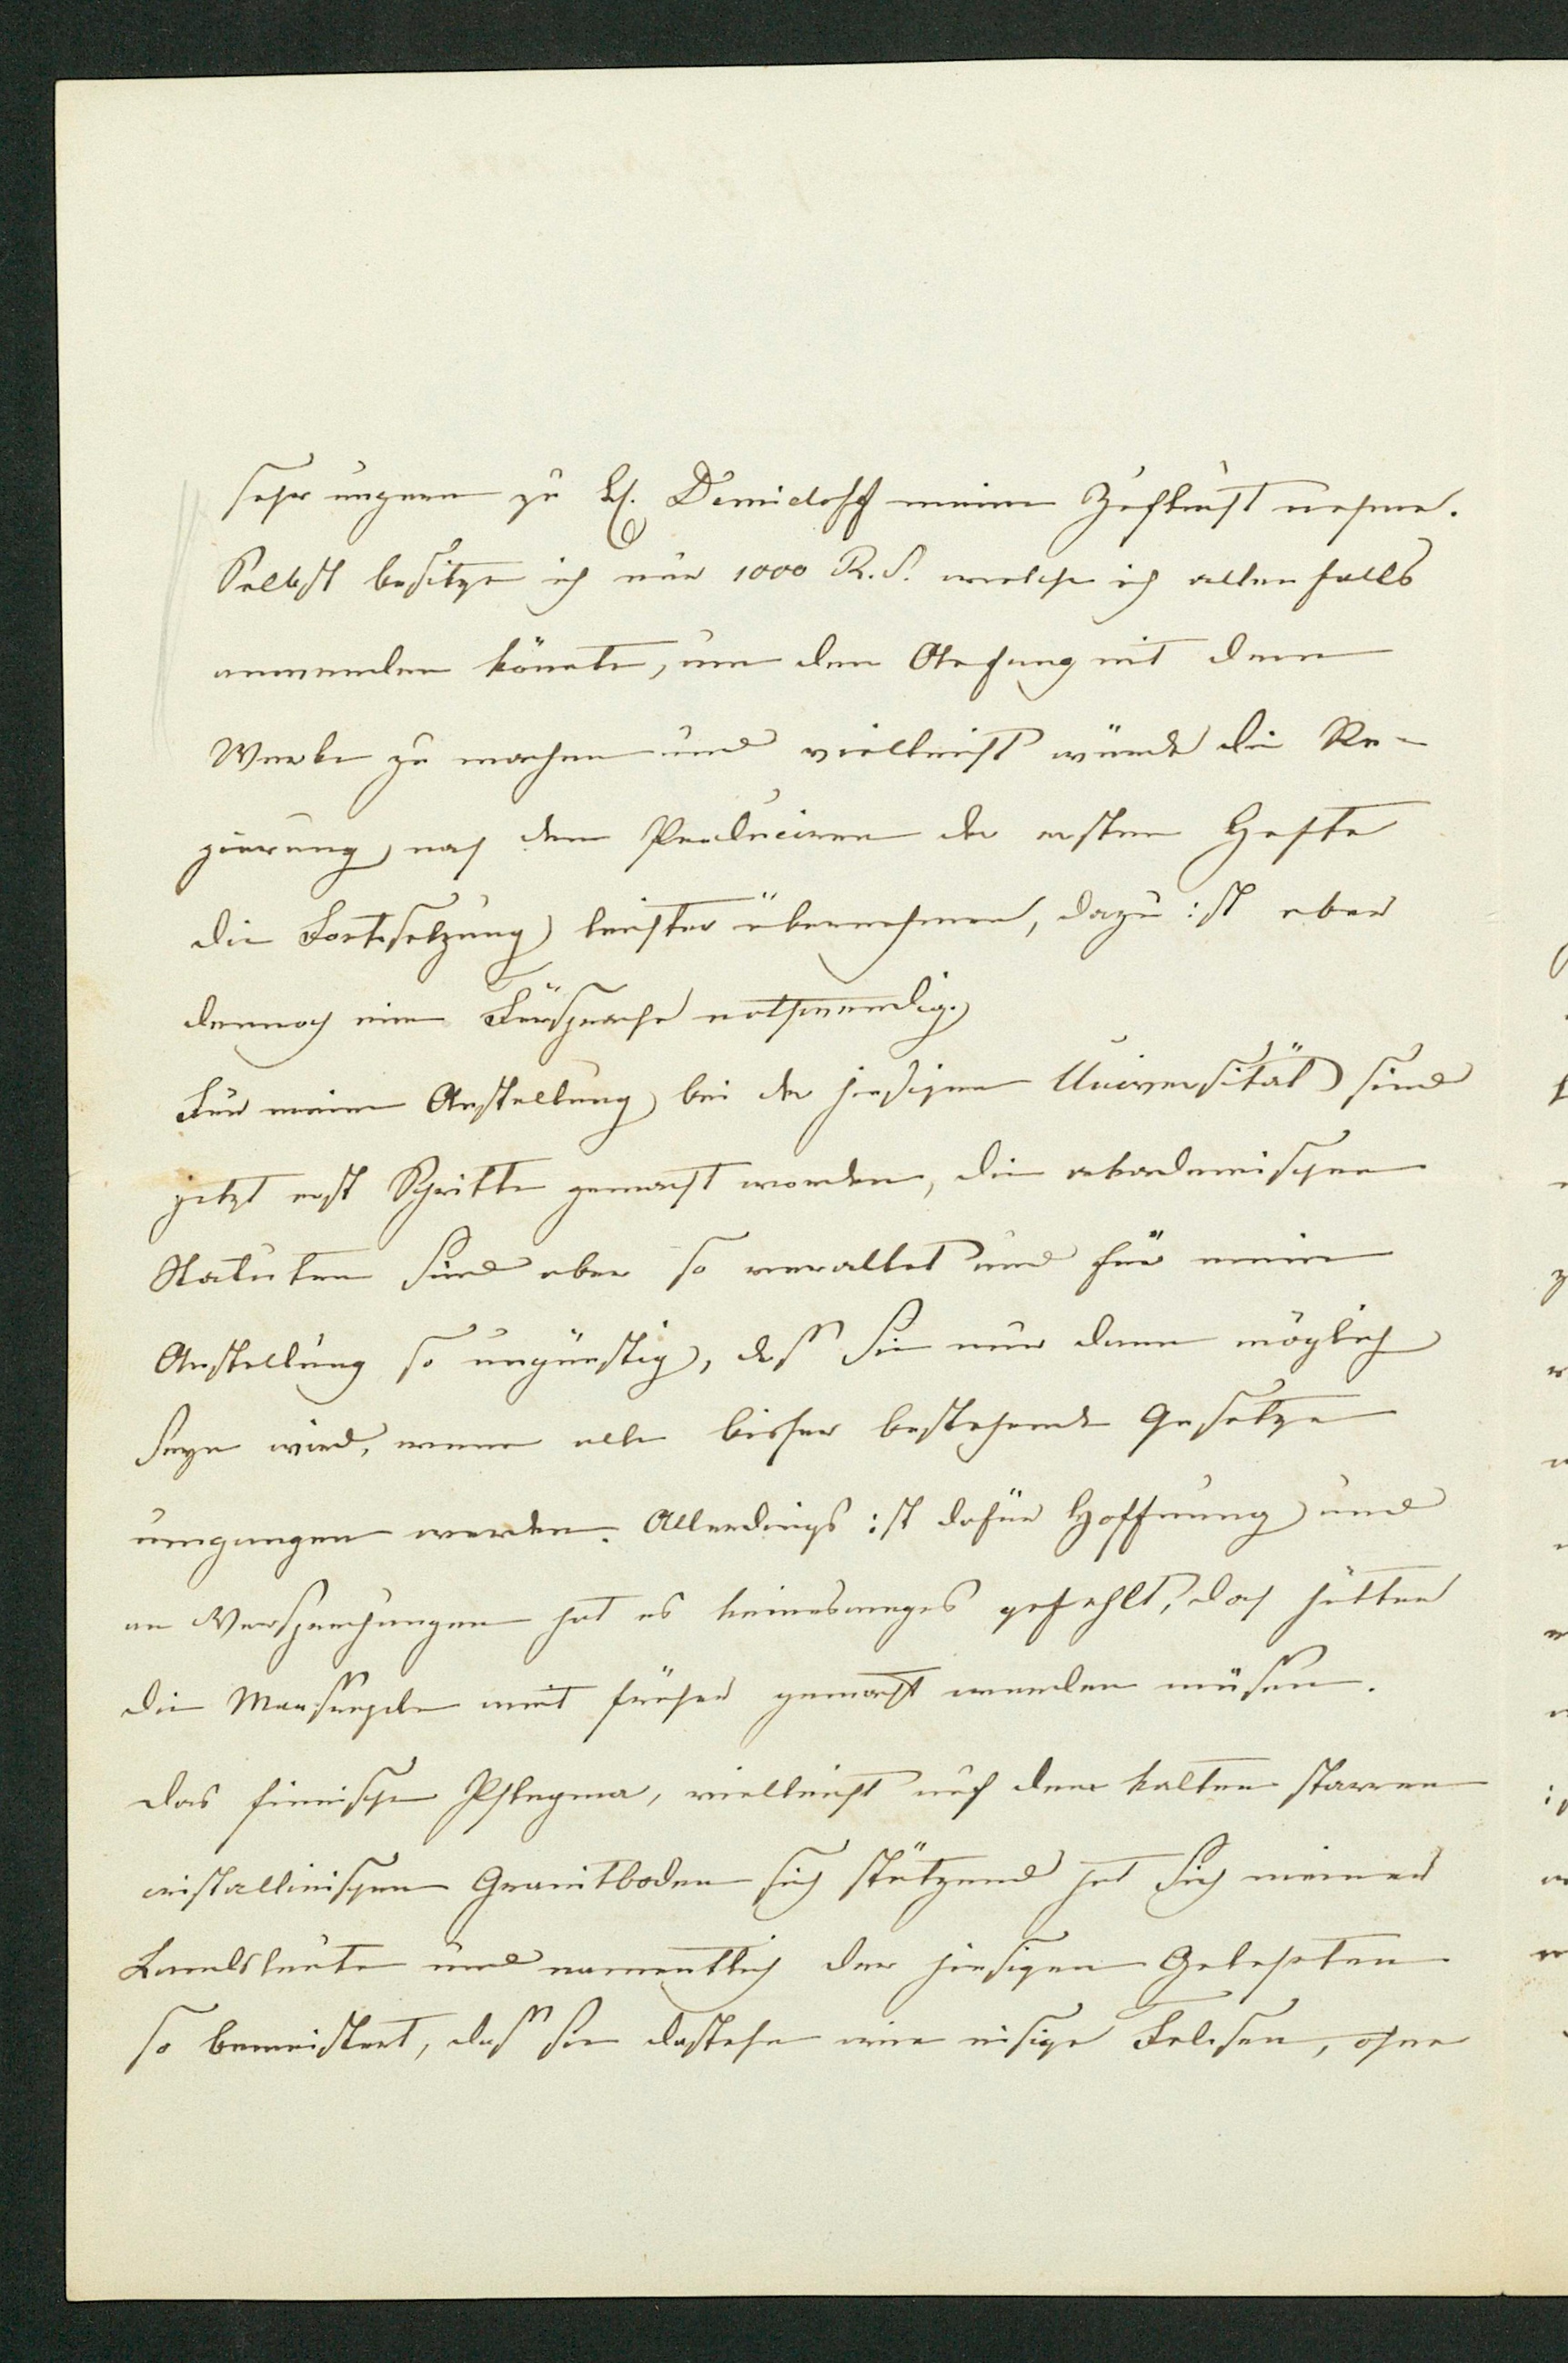 sehr ungern zu H. Demidoff meine Zuflucht nehme.
Selbst besitze ich nur 1000 R. S. welche ich allenfalls
anwenden könnte, um den Anfang mit dem
Werke zu machen und vielleicht würde die Re-
gierung, nach dem Produciren der ersten Hefte
die Fortsetzung leichter übernehmen, dazu ist aber
dennoch eine Fürsprache nothwendig.
Für meine Anstellung bei der hiesigen Universität sind
jetzt erst Schritte gemacht worden, die akademischen
Statuten sind aber so veraltet und für meine
Anstellung so ungünstig, dass sie nur dann möglich
seyn wird, wenn alle bisher bestehende Gesetze
umgangen werden. Allerdings ist dafür Hoffnung und
an Versprechungen hat es keineswegs gefehlt, doch hätten
die Maasregeln weit früher gemacht werden müssen.
Das finnische Phlegma, vielleicht auf dem kalten starren
cristallinischen Granitboden sich stützend hat sich meiner
Landsleute und namentlich der hiesigen Gelehrten
so bemeistert, dass sie dastehn wie eisige Felsen, ohne